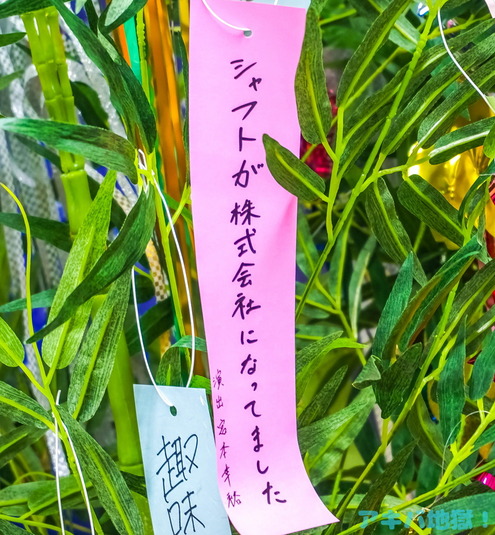 シャフトが株式会社になってました
演出 宮本幸裕
趣味
アキバ地獄!